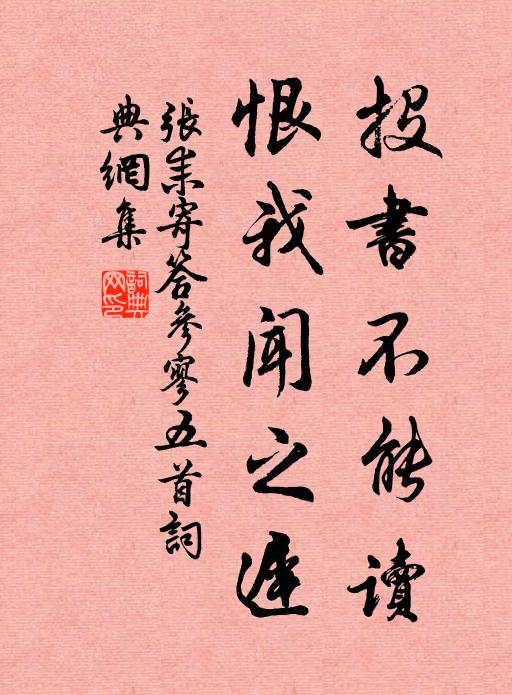 投書不能讀
恨我聞之遲
張耒寄答參寥五首詞
典網集
詞典网印